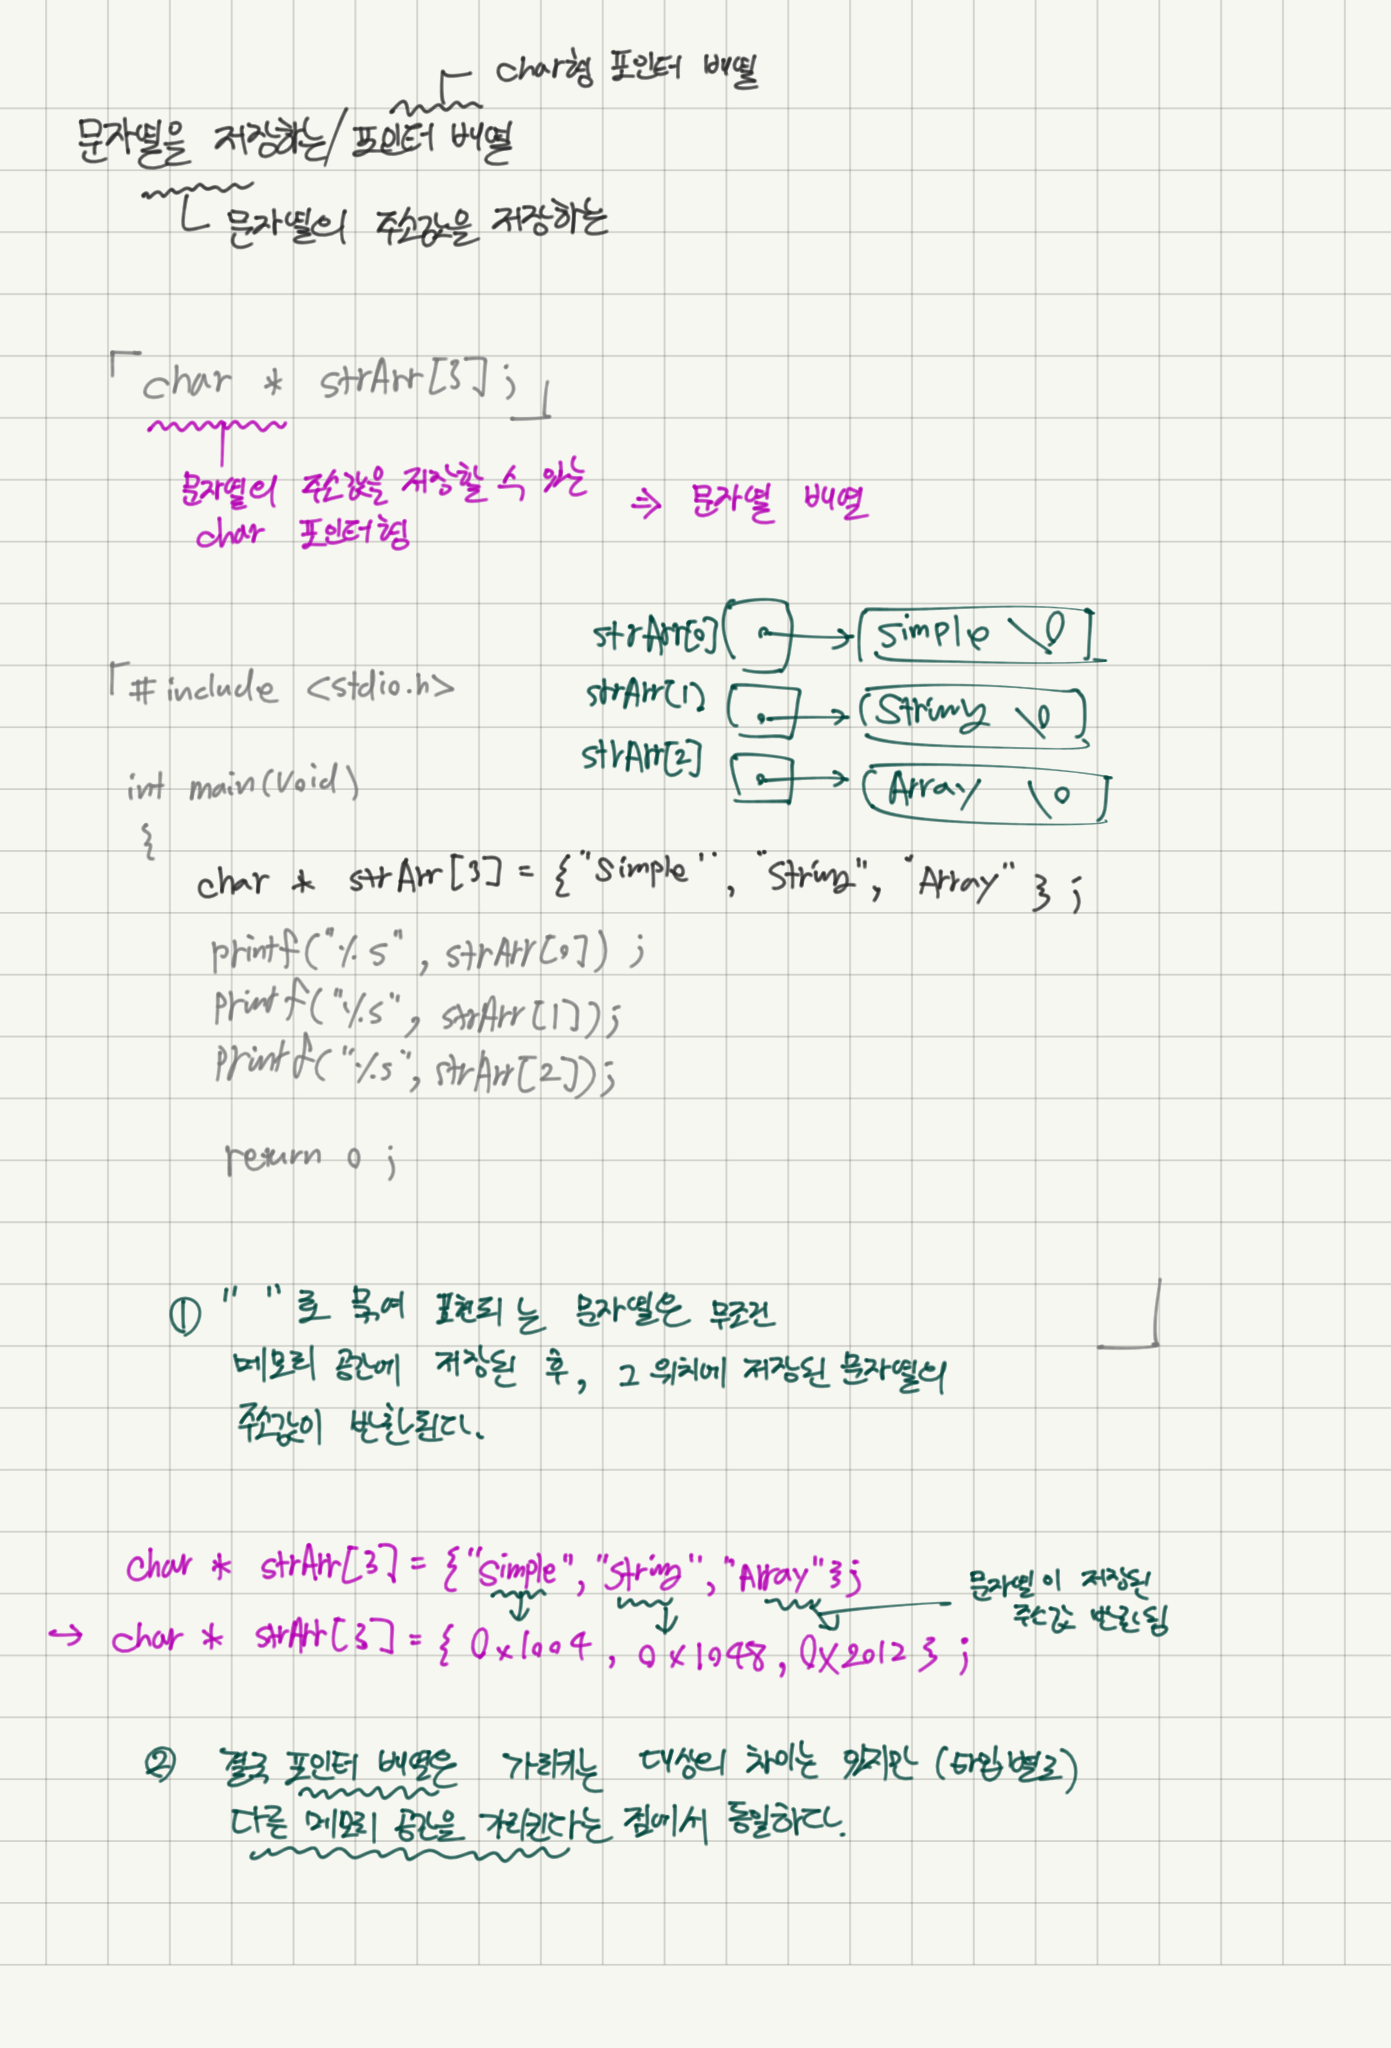 char형 포인터 배열
문자열을 저장하는/포인터 배열
문자열의 주소값을 저장하는
「char * strArr[3];」
문자열의 주소값을 저장할 수 있는
char 포인터형
⇒ 문자열 배열
strArr[0] simple \0
strArr(1) String \0
strArr[2] Array \0
「#include <stdio.h>
int main(void)
{
char * strArr[3] = {"Simple", "String", "Array"};
printf("%s", strArr[0]);
printf("%s", strArr[1]);
printf("%s", strArr[2]);
return 0;
① " "로 묶여 표현되는 문자열은 무조건
메모리 공간에 저장된 후, 그 위치에 저장된 문자열의
주소값이 반환된다.
」
char * strArr[3] = {"Simple", "String", "Array"};
문자열이 저장된
주소값 반환됨
→ char * strArr[3] = {0x1004, 0x1048, 0x2012};
② 결국 포인터 배열은 가리키는 대상의 차이는 있지만 (타입별로)
다른 메모리 공간을 가리킨다는 점에서 동일하다.